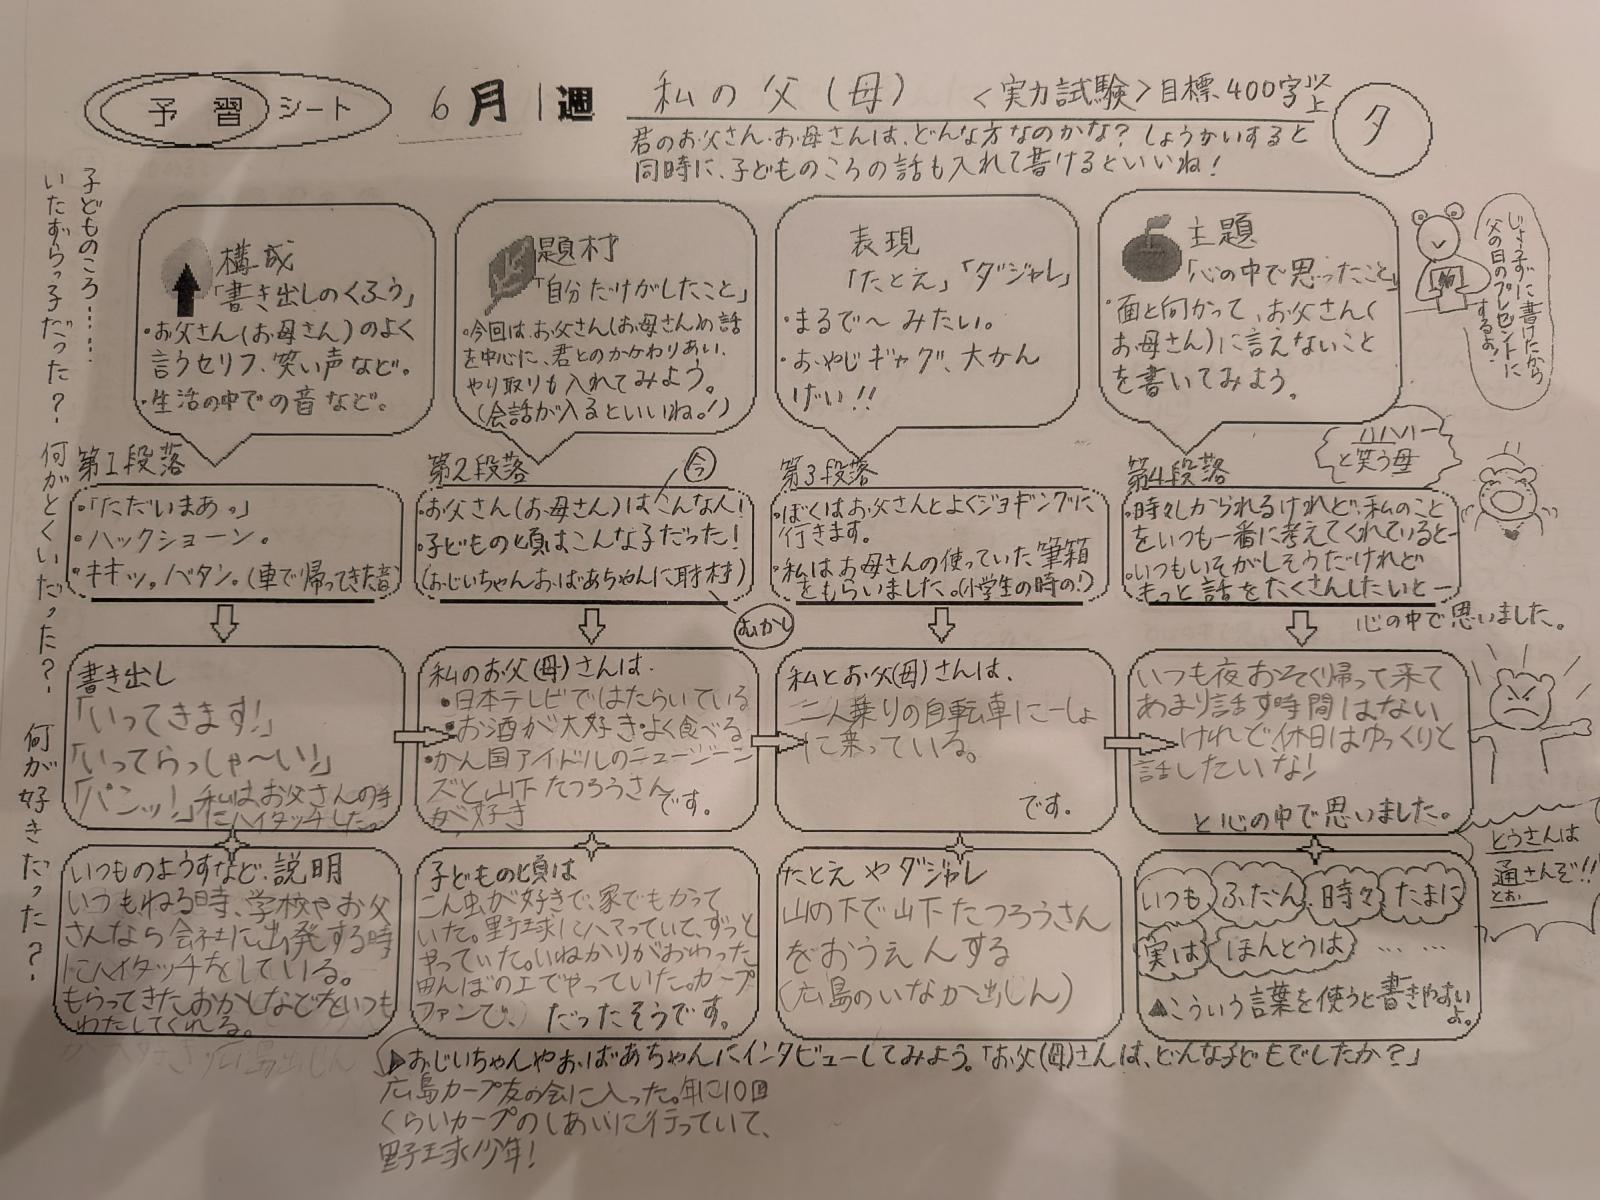 予習シート
6月1週
私の父(母)
<実力試験>目標、400字以上
夕
君のお父さん・お母さんは、どんな方なのかな?しょうかいすると
同時に、子どものころの話も入れて書けるといいね!
子どものころ……
いたずらっ子だった?何がとくいだった?何が好きだった?
構成
「書き出しのくふう」
・お父さん(お母さん)のよく
言うセリフ、笑い声など。
・生活の中での音など。
題材
「自分だけがしたこと」
・今回は、お父さん(お母さん)の話
を中心に、君とのかかわりあい、
やり取りも入れてみよう。
(会話が入るといいね。!)
表現
「たとえ」「ダジャレ」
・まるで〜みたい。
・おやじギャグ、大かん
げい!!
主題
「心の中で思ったこと」
・面と向かって、お父さん(
お母さん)に言えないこと
を書いてみよう。
じょうずに書けたから
父の日のプレゼントに
するよ!
第1段落
・「ただいまあっ」
・ハックショーン。
・キキッ。バタン。(車で帰ってきた音)
第2段落
今
・お父さん(お母さん)はこんな人!
・子どもの頃はこんな子だった!
(おじいちゃんおばあちゃんに取材)
むかし
第3段落
・ぼくはお父さんとよくジョギングに
行きます。
・私はお母さんの使っていた筆箱
をもらいました。(小学生の時の!)
第4段落
・時々しかられるけれど、私のこと
をいつも一番に考えてくれていると―
・いつもいそがしそうだけれど
もっと話をたくさんしたいと―
心の中で思いました。
ハハハー
と笑う母
書き出し
「いってきます!」
「いってらっしゃ〜い!」
「パンッ!」私はお父さんの手
にハイタッチした。
私のお父(母)さんは、
・日本テレビではたらいている
・お酒が大好き・よく食べる
・かん国アイドルのニュージーン
ズと山下たつろうさん
が好き
です。
私とお父(母)さんは、
二人乗りの自転車に一しょ
に乗っている。
です。
いつも夜おそく帰って来て
あまり話す時間はない
けれど、休日はゆっくりと
話したいな!
と心の中で思いました。
いつものようすなど・説明
いつもねる時、学校やお父
さんなら会社に出発する時
にハイタッチをしている。
もらってきたおかしなどをいつも
わたしてくれる。
子どもの頃は
こん虫が好きで、家でもかって
いた。野球にハマっていて、ずっと
やっていた。いねかりがおわった
田んぼの上でやっていた。カープ
ファンで、
だったそうです。
たとえやダジャレ
山の下で山下たつろうさん
をおうえんする
(広島のいなか出しん)
いつも ふだん 時々 たまに
実は ほんとうは … …
▲こういう言葉を使うと書きやすい
よ。
とうさんは
通さんぞ!!
とお
▶おじいちゃんやおばあちゃんにインタビューしてみよう。「お父(母)さんは、どんな子どもでしたか?」
広島カープ友の会に入った。年に10回
くらいカープのしあいに行っていて、
野球少年!